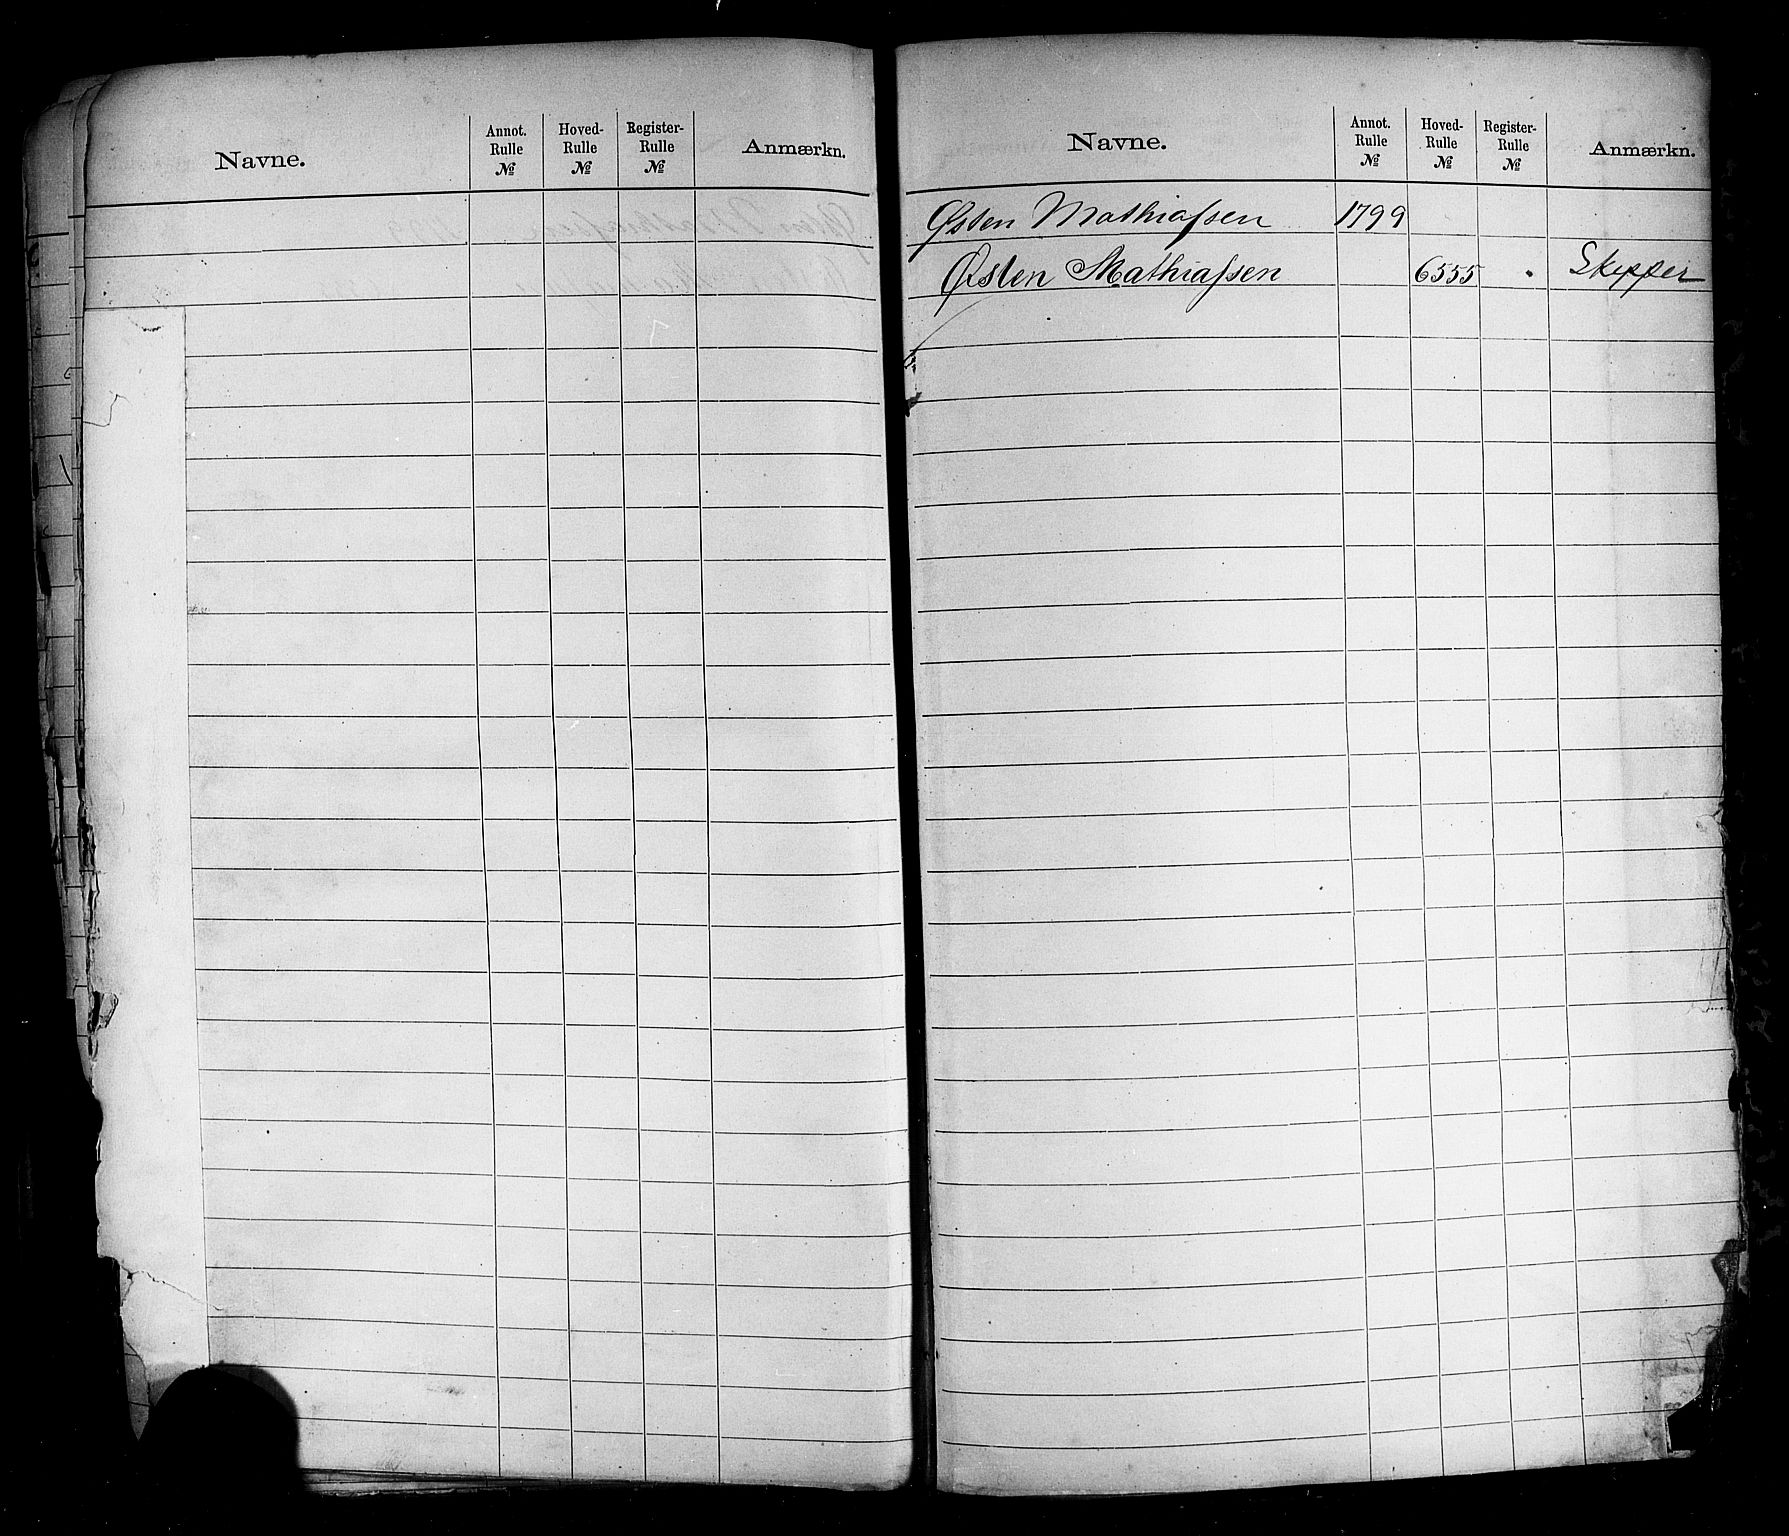 Navne.
Annot. Rulle №
Hoved- Rulle №
Register- Rulle №
Anmærkn.
Navne.
Annot. Rulle №
Hoved- Rulle №
Register- Rulle №
Anmærkn.
Østen Mathiaſsen 1799
Østen Mathiaſsen 6555 Skipper